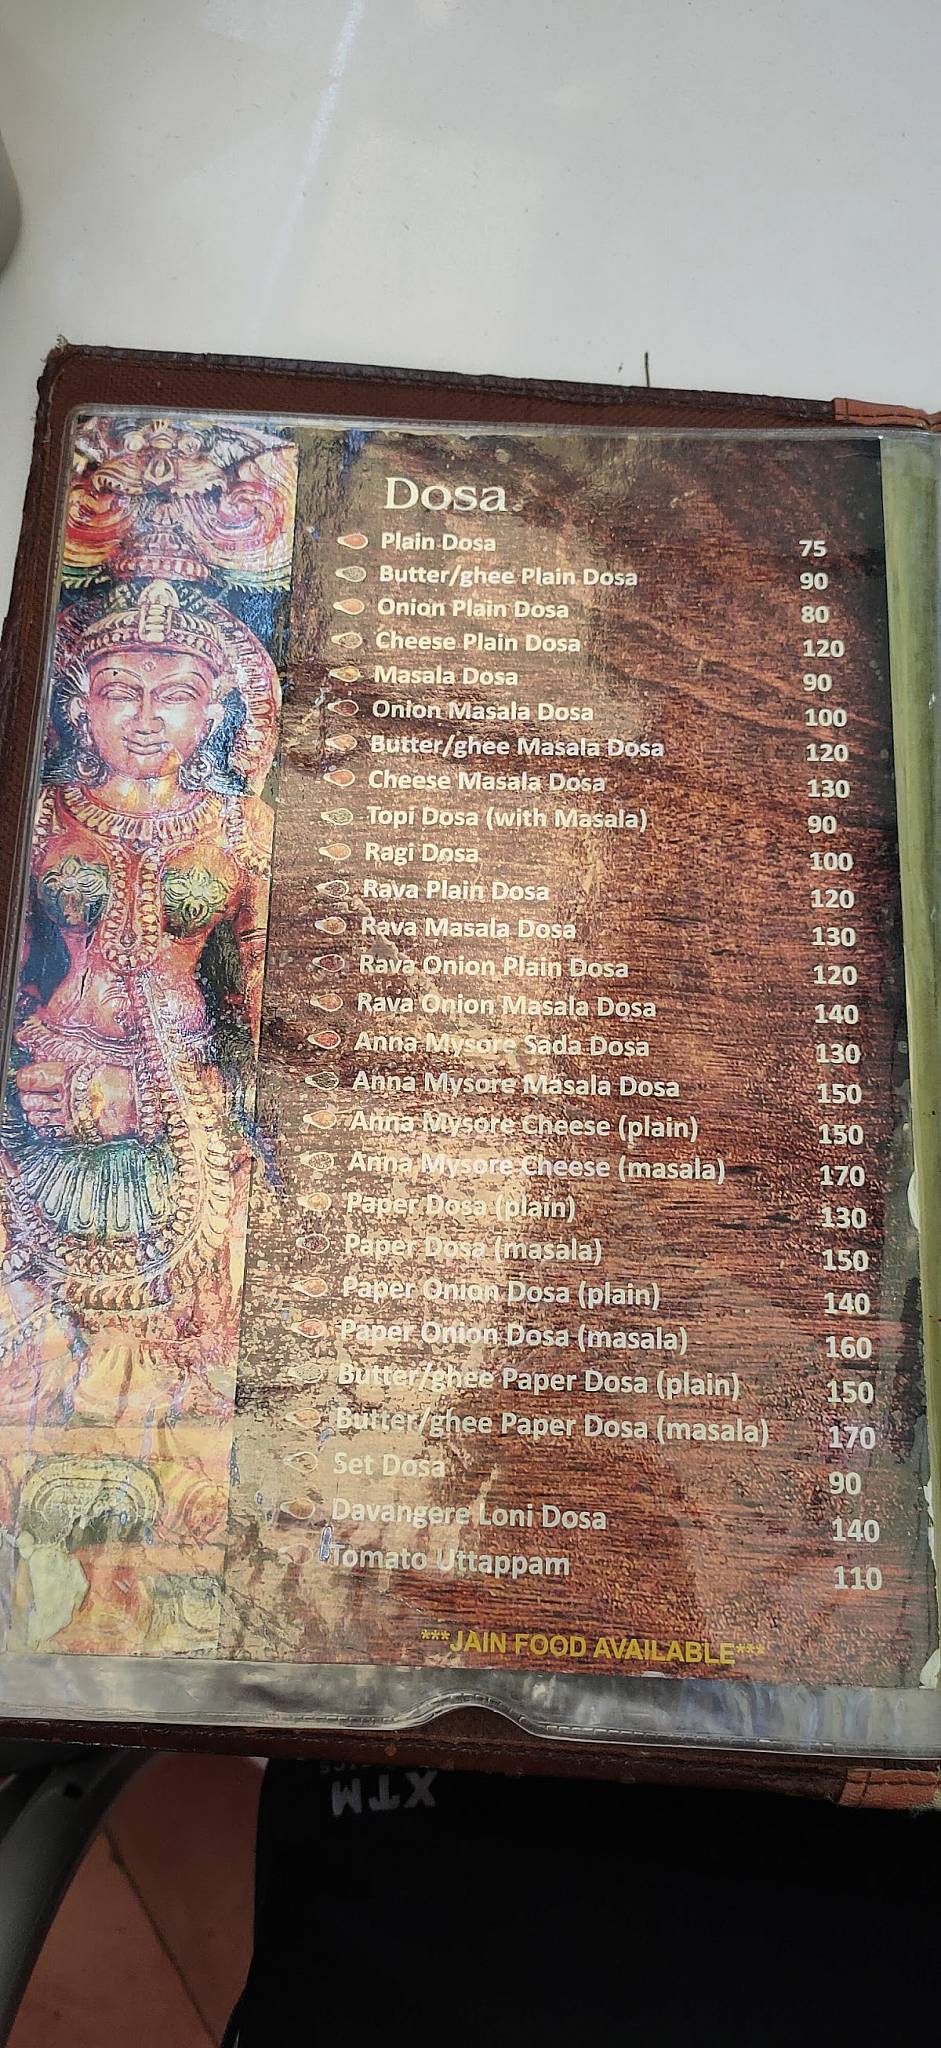 Dosa
Plain Dosa 75
Butter/ghee Plain Dosa 90
Onion Plain Dosa 80
Cheese Plain Dosa 120
Masala Dosa 90
Onion Masala Dosa 100
Butter/ghee Masala Dosa 120
Cheese Masala Dosa 130
Topi Dosa (with Masala) 90
Ragi Dosa 100
Rava Plain Dosa 120
Rava Masala Dosa 130
Rava Onion Plain Dosa 120
Rava Onion Masala Dosa 140
Anna Mysore Sada Dosa 130
Anna Mysore Masala Dosa 150
Anna Mysore Cheese (plain) 150
Anna Mysore Cheese (masala) 170
Paper Dosa (plain) 130
Paper Dosa (masala) 150
Paper Onion Dosa (plain) 140
Paper Onion Dosa (masala) 160
Butter/ghee Paper Dosa (plain) 150
Butter/ghee Paper Dosa (masala) 170
Set Dosa 90
Davangere Loni Dosa 140
Tomato Uttappam 110
***JAIN FOOD AVAILABLE***